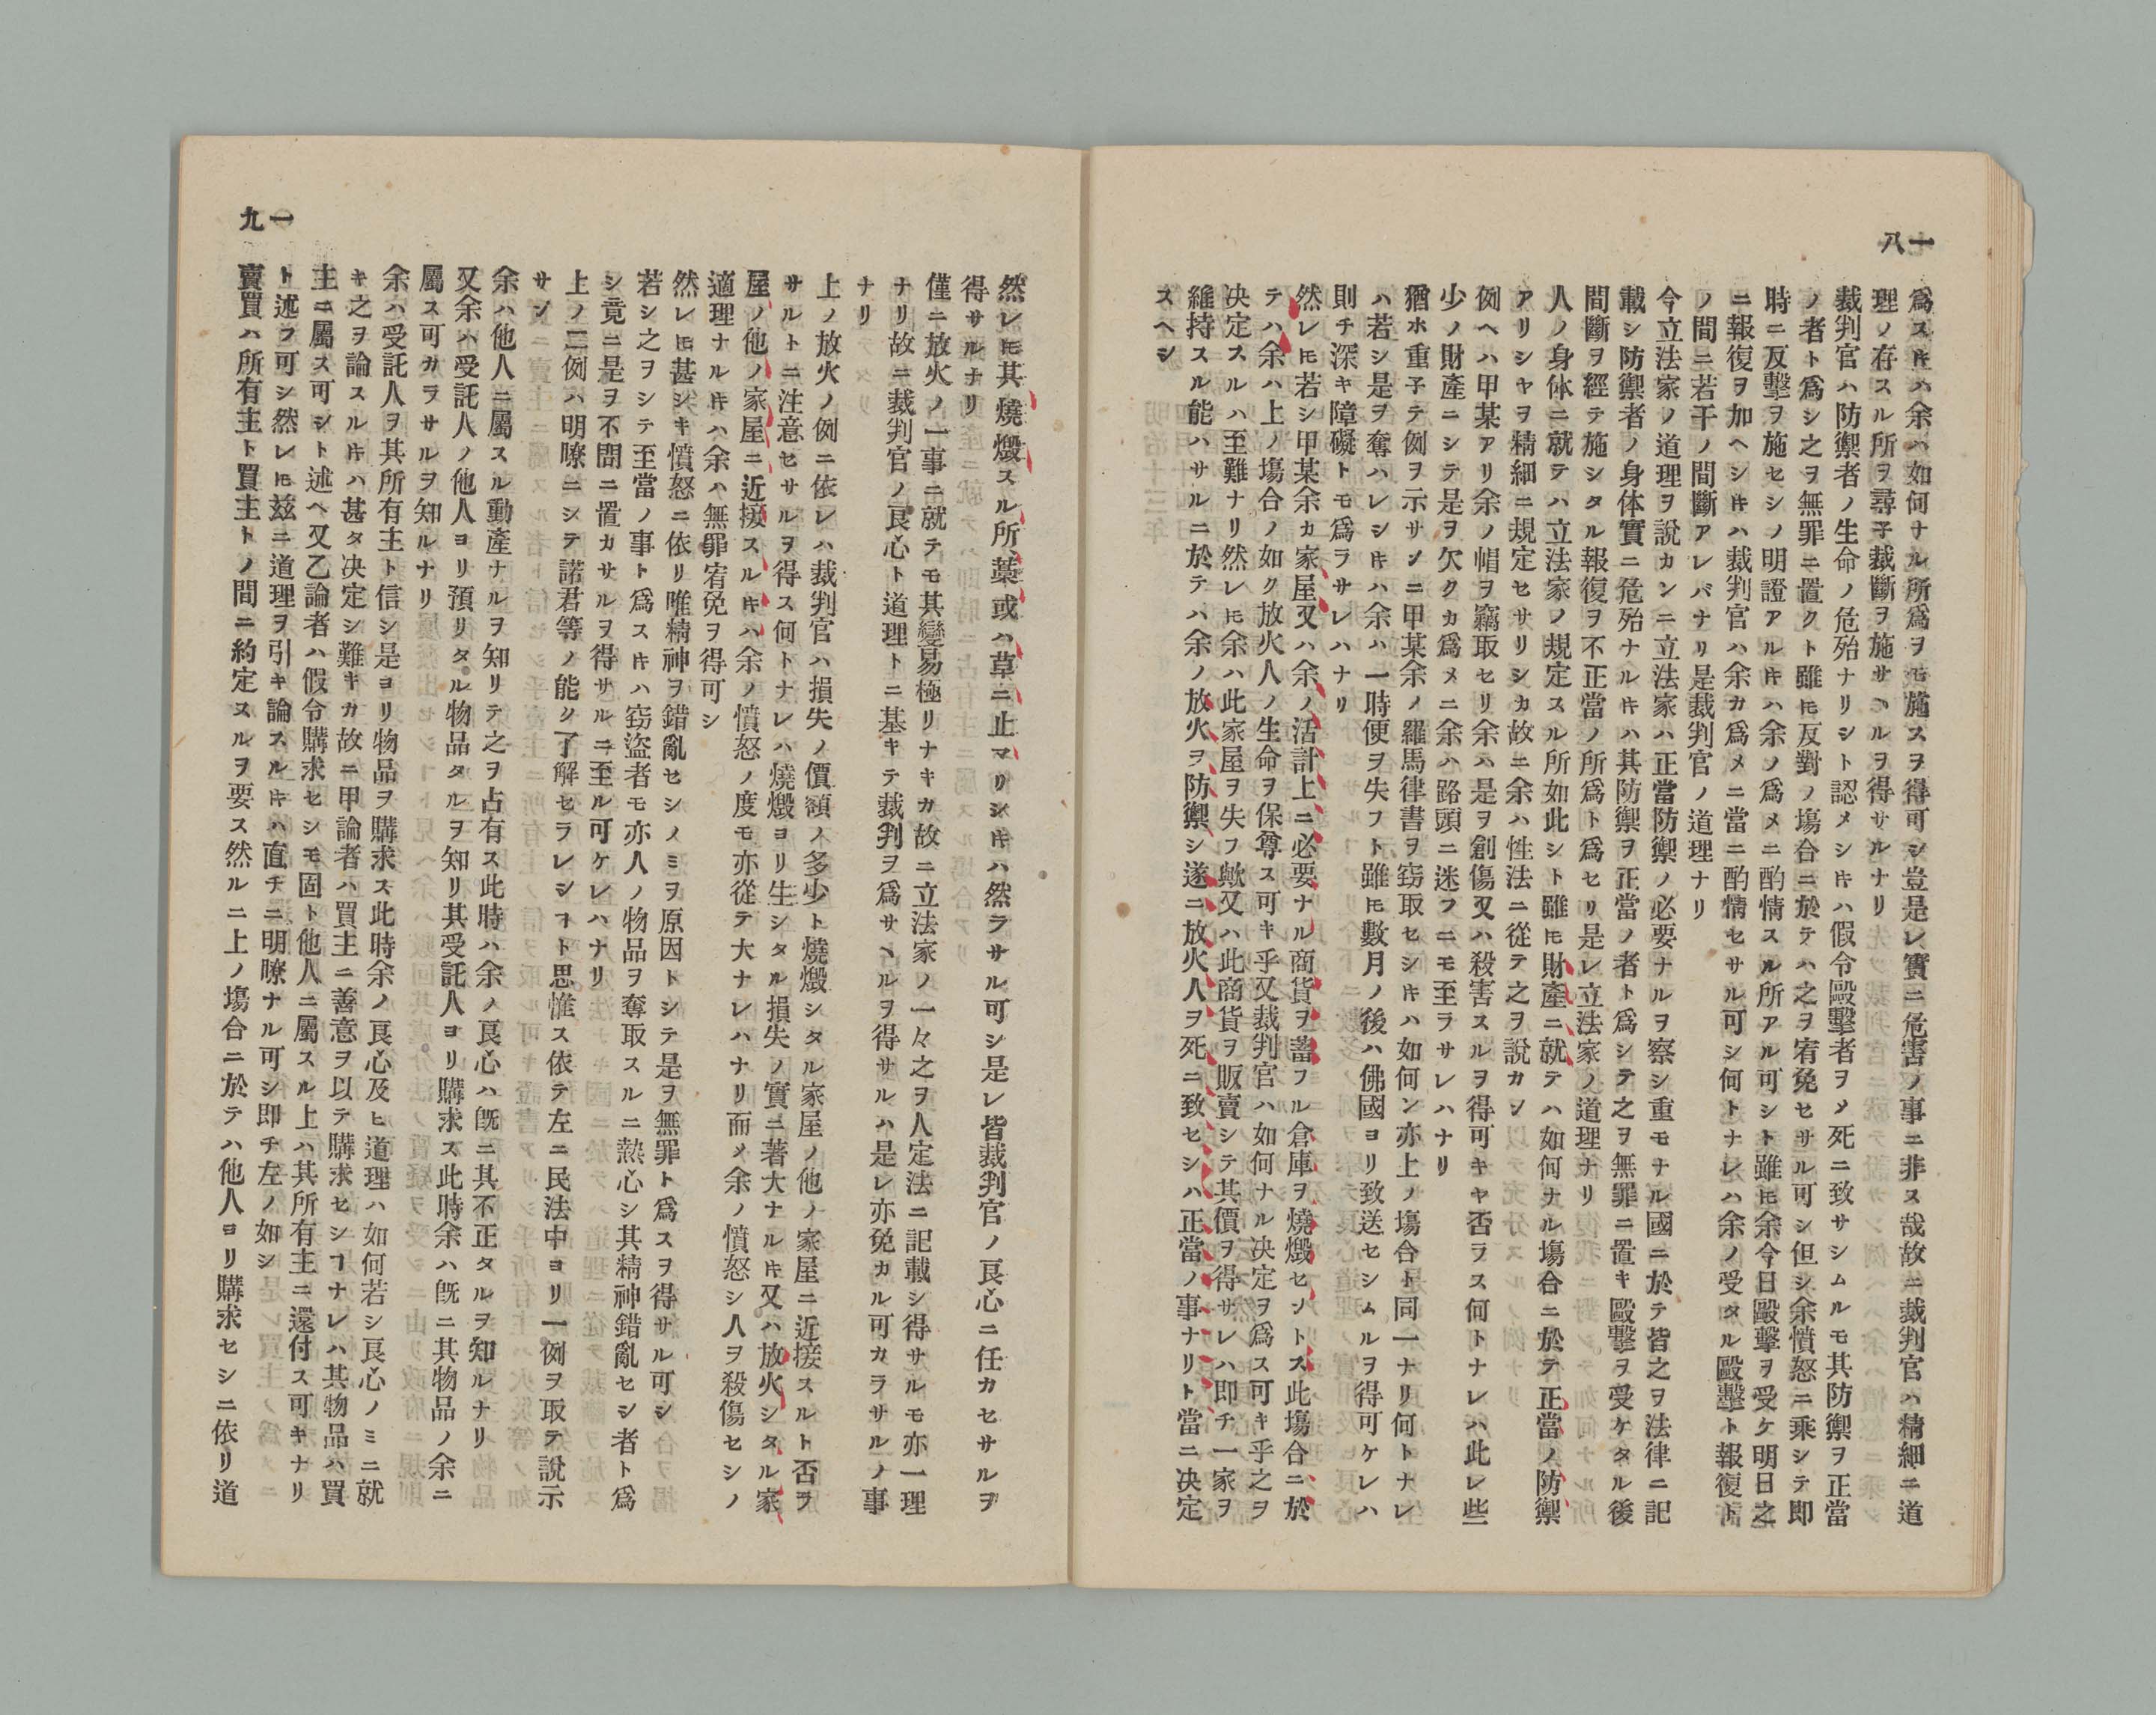 一八
爲スキハ余ハ如何ナル所爲ヲモ施スヲ得可シ豈是レ實ニ危害ノ事ニ非ス哉故ニ裁判官ハ精細ニ道
理ノ存スル所ヲ尋子裁斷ヲ施サヽルヲ得サルナリ
裁判官ハ防禦者ノ生命ノ危殆ナリシト認メシキハ假令毆擊者ヲメ死ニ致サシムルモ其防禦ヲ正當
ノ者ト爲シ之ヲ無罪ニ置クト雖𪜈反對ノ塲合ニ於テハ之ヲ宥免セサル可シ但シ余憤怒ニ乘シテ即
時ニ反擊ヲ施セシノ明證アルキハ余ノ爲メニ酌情スル所アル可シト雖𪜈余今日毆擊ヲ受ケ明日之
ニ報復ヲ加ヘシキハ裁判官ハ余カ爲メニ當ニ酌情セサル可シ何トナレハ余ノ受タル毆擊ト報復ト
ノ間ニ若干ノ間斷アレバナリ是裁判官ノ道理ナリ
今立法家ノ道理ヲ說カンニ立法家ハ正當防禦ノ必要ナルヲ察シ重モナル國ニ於テ皆之ヲ法律ニ記
載シ防禦者ノ身体實ニ危殆ナルキハ其防禦ヲ正當ノ者ト爲シテ之ヲ無罪ニ置キ毆擊ヲ受ケタル後
間斷ヲ經テ施シタル報復ヲ不正當ノ所爲ト爲セリ是レ立法家ノ道理ナリ
人ノ身体ニ就テハ立法家ノ規定スル所如此シト雖𪜈財產ニ就テハ如何ナル塲合ニ於テ正當ノ防禦
アリシヤヲ精細ニ規定セサリシカ故ニ余ハ性法ニ從テ之ヲ說カン
例ヘハ甲某アリ余ノ帽ヲ竊取セリ余ハ是ヲ創傷又ハ殺害スルヲ得可キヤ否ヲス何トナレハ此レ些
少ノ財產ニシテ是ヲ欠クカ爲メニ余ハ路頭ニ迷フニモ至ラサレハナリ
猶ホ重子テ例ヲ示サンニ甲某余ノ羅馬律書ヲ窃取セシキハ如何ン亦上ノ塲合ト同一ナリ何トナレ
ハ若シ是ヲ奪ハレシキハ余ハ一時便ヲ失フト雖𪜈數月ノ後ハ佛國ヨリ致送セシムルヲ得可ケレハ
則チ深キ障礙トモ爲ラサレハナリ
然レ𪜈若シ甲某余カ家屋又ハ余ノ活計上ニ必要ナル商貨ヲ蓄フル倉庫ヲ燒燬セントス此塲合ニ於
テハ余ハ上ノ塲合ノ如ク放火人ノ生命ヲ保尊ス可キ乎又裁判官ハ如何ナル决定ヲ爲ス可キ乎之ヲ
决定スルハ至難ナリ然レ𪜈余ハ此家屋ヲ失フ歟又ハ此商貨ヲ販賣シテ其價ヲ得サレハ即チ一家ヲ
維持スル能ハサルニ於テハ余ノ放火ヲ防禦シ遂ニ放火人ヲ死ニ致セシハ正當ノ事ナリト當ニ决定
スヘシ
一九
然レ𪜈其燒燬スル所、藁或ハ草ニ止マリシキハ然ラサル可シ是レ皆裁判官ノ良心ニ任カセサルヲ
得サルナリ
僅ニ放火ノ一事ニ就テモ其變易極リナキカ故ニ立法家ノ一々之ヲ人定法ニ記載シ得サルモ亦一理
ナリ故ニ裁判官ノ良心ト道理トニ基キテ裁判ヲ爲サヽルヲ得サルハ是レ亦免カル可カラサルノ事
ナリ
上ノ放火ノ例ニ依レハ裁判官ハ損失ノ價額ノ多少ト燒燬シタル家屋ノ他ノ家屋ニ近接スルト否ヲ
サルトニ注意セサルヲ得ス何トナレハ燒燬ヨリ生シタル損失ノ實ニ著大ナルキ又ハ放火シタル家
屋ノ他ノ家屋ニ近接スルキハ余ノ憤怒ノ度モ亦從テ大ナレハナリ而メ余ノ憤怒シ人ヲ殺傷セシノ
適理ナルキハ余ハ無罪宥免ヲ得可シ
然レ𪜈甚シキ憤怒ニ依リ唯精神ヲ錯亂セシノミヲ原因トシテ是ヲ無罪ト爲スヲ得サル可シ
若シ之ヲシテ至當ノ事ト爲スキハ窃盜者モ亦人ノ物品ヲ奪取スルニ熱心シ其精神錯亂セシ者ト爲
シ竟ニ是ヲ不問ニ置カサルヲ得サルニ至ル可ケレハナリ
上ノ二例ハ明瞭ニシテ諸君等ノ能ク了解セラレシヿト思惟ス依テ左ニ民法中ヨリ一例ヲ取テ說示
サン
余ハ他人ニ屬スル動產ナルヲ知リテ之ヲ占有ス此時ハ余ノ良心ハ旣ニ其不正タルヲ知ルナリ
又余ハ受託人ノ他人ヨリ預リタル物品タルヲ知リ其受託人ヨリ購求ス此時余ハ旣ニ其物品ノ余ニ
屬ス可カラサルヲ知ルナリ
余ハ受託人ヲ其所有主ト信シ是ヨリ物品ヲ購求ス此時余ノ良心及ヒ道理ハ如何若シ良心ノミニ就
キ之ヲ論スルキハ甚タ决定シ難キカ故ニ甲論者ハ買主ニ善意ヲ以テ購求セシヿナレハ其物品ハ買
主ニ屬ス可シト述ヘ又乙論者ハ假令購求セシモ固ト他人ニ屬スル上ハ其所有主ニ還付ス可キナリ
ト述フ可シ然レ𪜈玆ニ道理ヲ引キ論スルキハ直チニ明瞭ナル可シ即チ左ノ如シ
賣買ハ所有主ト買主トノ間ニ約定スルヲ要ス然ルニ上ノ塲合ニ於テハ他人ヨリ購求セシニ依リ道